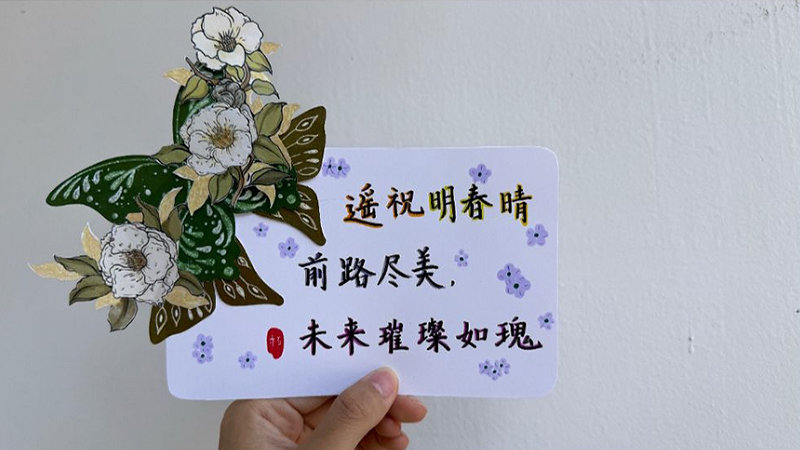 遥祝明春晴
前路尽美,
未来璀璨如瑰